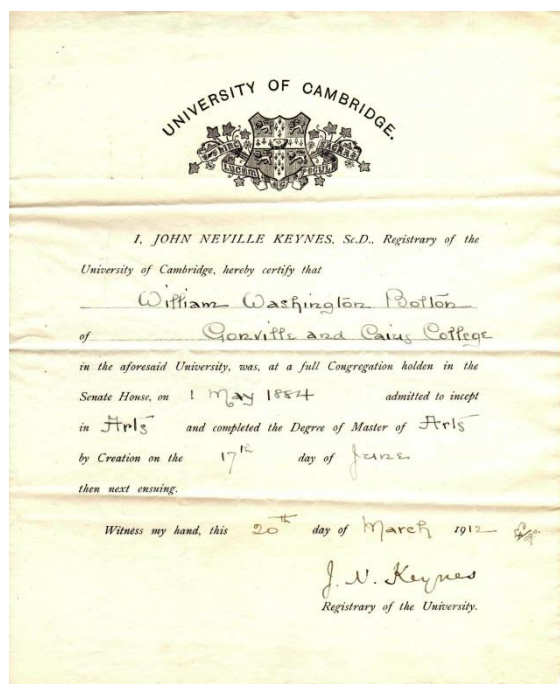 UNIVERSITY OF CAMBRIDGE.
I, JOHN NEVILLE KEYNES, Sc.D., Registrary of the
University of Cambridge, hereby certify that
William Washington Bolton
of Gonville and Caius College
in the aforesaid University, was, at a full Congregation holden in the
Senate House, on 1 May 1884 admitted to incept
in Arts and completed the Degree of Master of Arts
by Creation on the 17th day of June
then next ensuing.
Witness my hand, this 20th day of March 1912
J. N. Keynes
Registrary of the University.